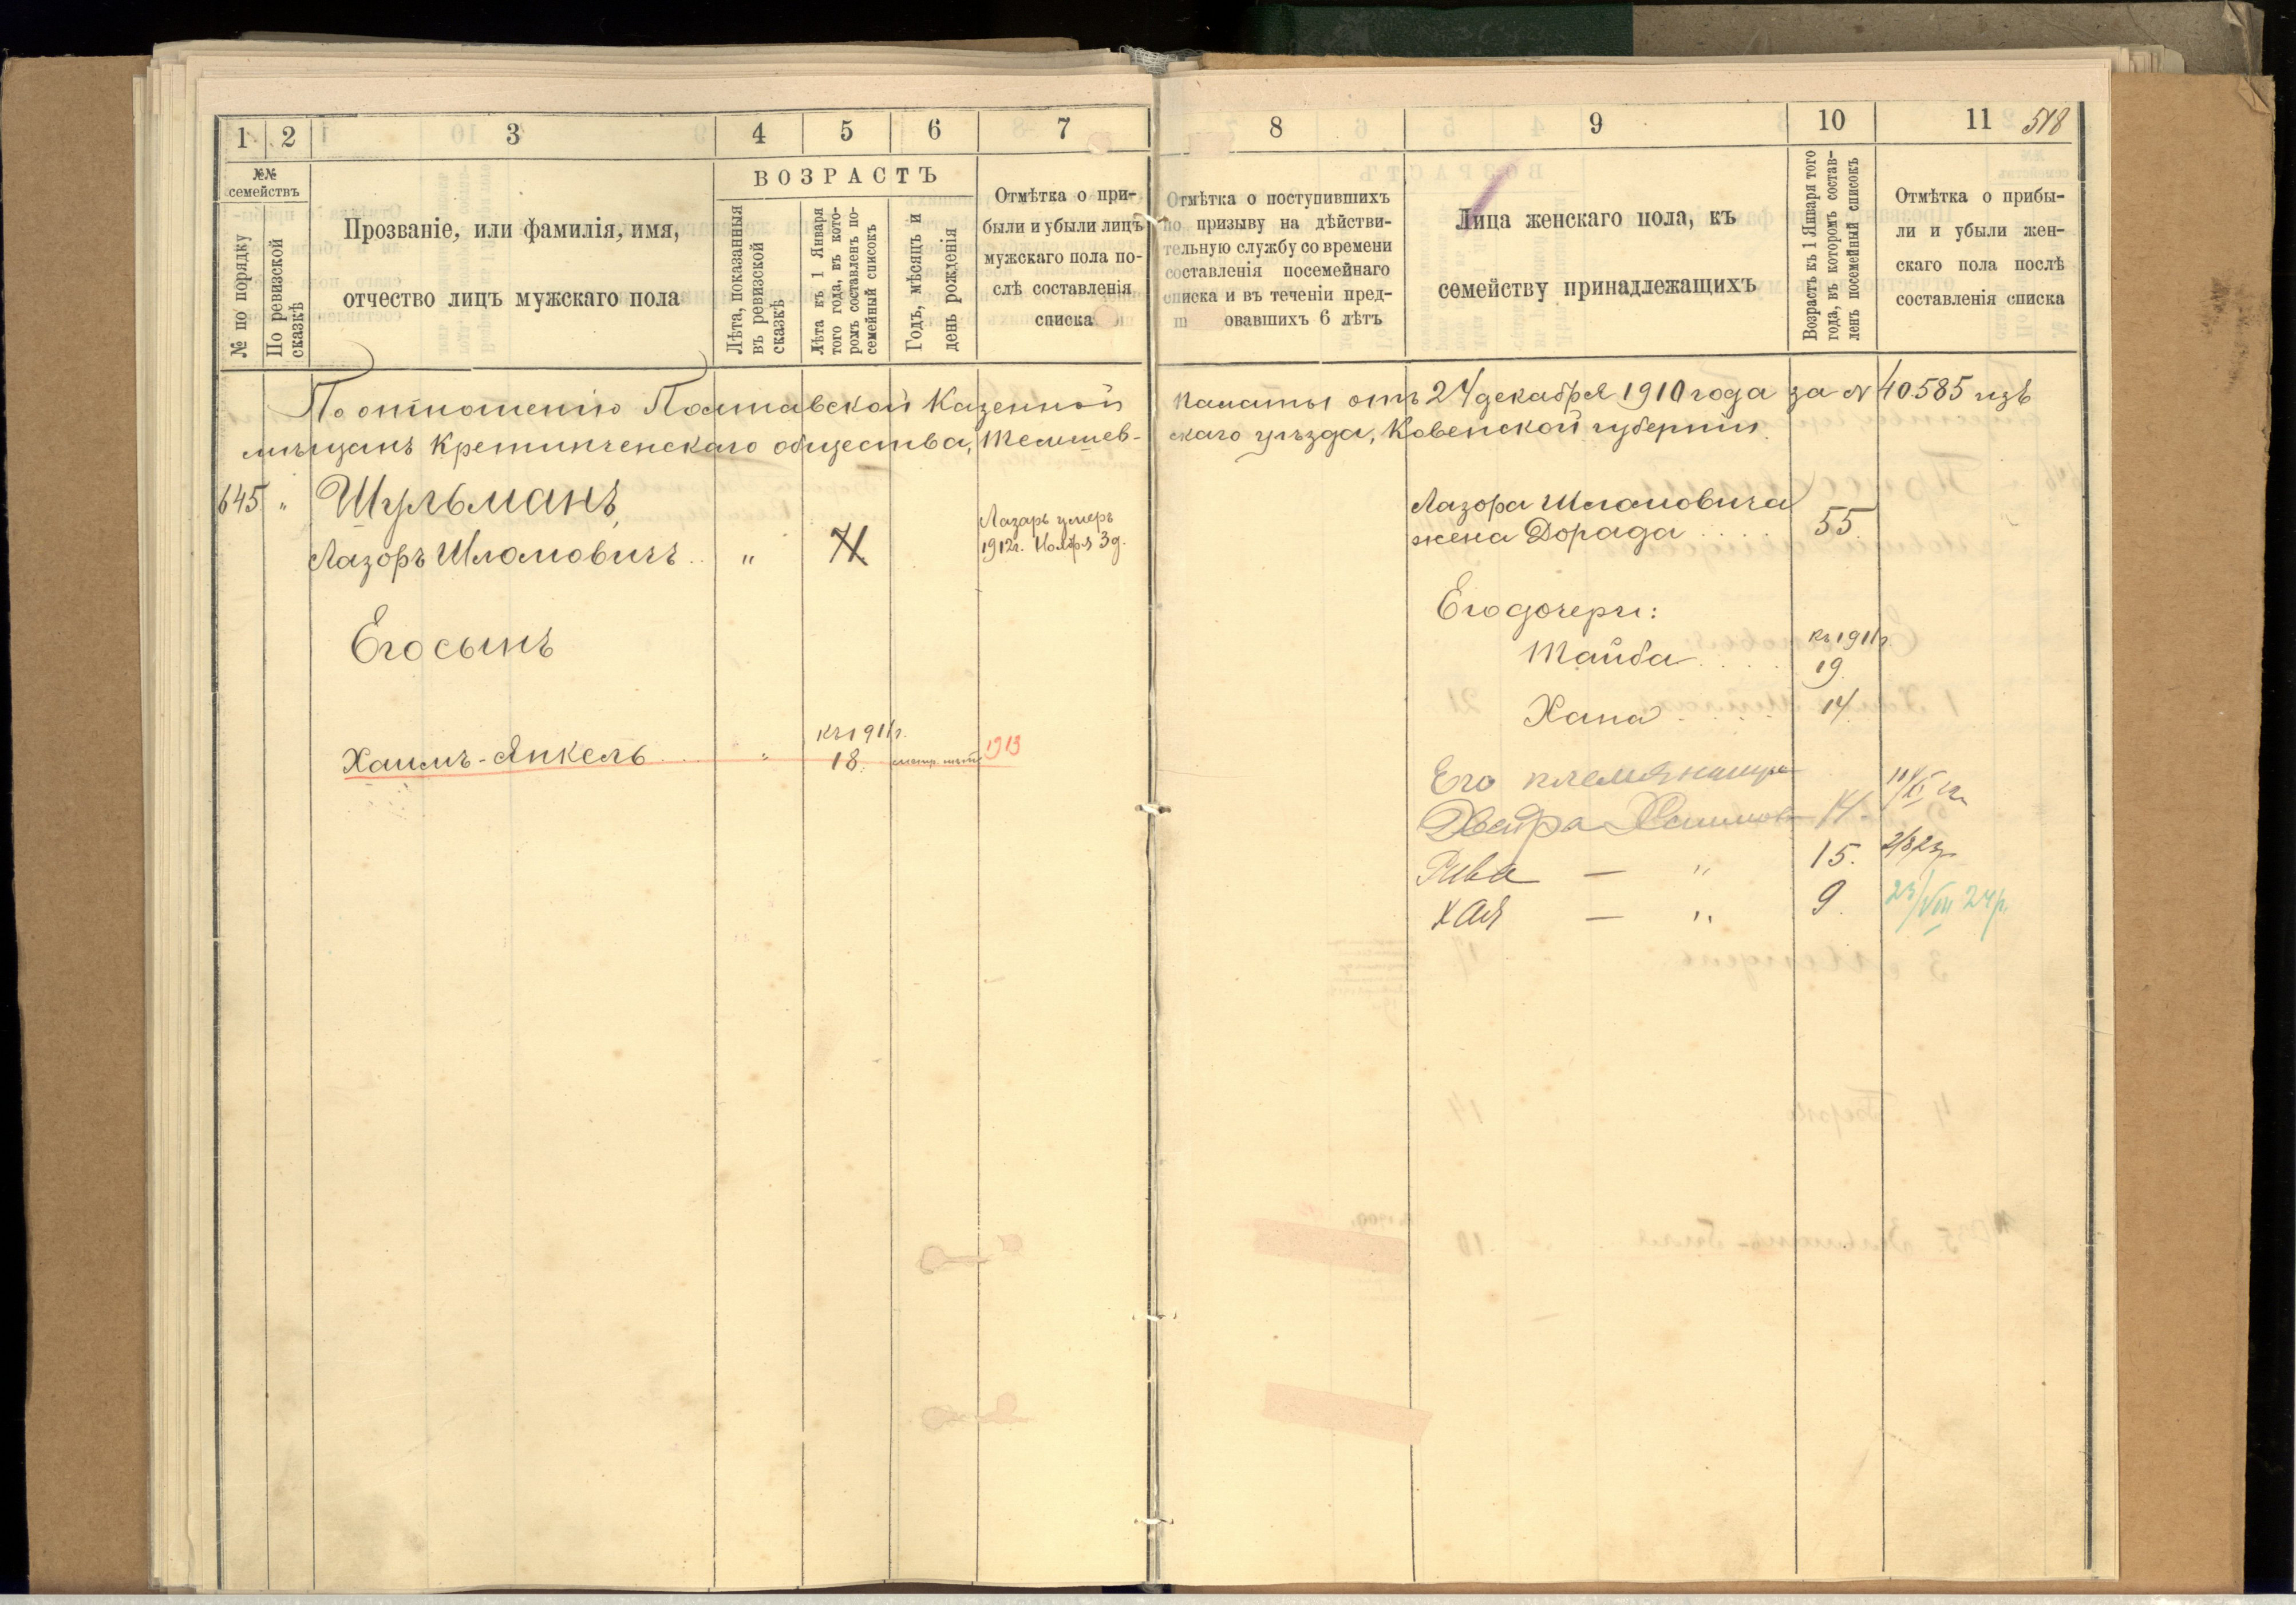 1 2 3 4 5 6 7
№№ семействъ
№ по порядку
По ревизской сказкѣ
Прозваніе, или фамилія, имя,
отчество лицъ мужскаго пола
ВОЗРАСТЪ
Лѣта, показанныя
въ ревизской
сказкѣ
Лѣта къ 1 Января
того года, въ кото-
ромъ составленъ по-
семейный списокъ
Годъ, мѣсяцъ и
день рожденія
Отмѣтка о при-
были и убыли лицъ
мужскаго пола по-
слѣ составленія
списка
По отношенію Полтавской Казенной
мѣщанъ Кретингенскаго общества, Тельшев-
645 " Шульманъ,
Лазоръ Шломовичъ .. " 71
Лазаръ умеръ
1912г. Ноября 3д.
Его сынъ
къ 1911г.
Хаимъ-Янкель " 18. 1913
8 9 10 11 518
Отмѣтка о поступившихъ
по призыву на дѣйстви-
тельную службу со времени
составленія посемейнаго
списка и въ теченіи пред-
овавшихъ 6 лѣтъ
Лица женскаго пола, къ
семейству принадлежащихъ
Возрастъ къ 1 Января того
года, въ которомъ состав-
ленъ посемейный списокъ
Отмѣтка о прибы-
ли и убыли жен-
скаго пола послѣ
составленія списка
Палаты отъ 24 декабря 1910 года за N 40585 изъ
скаго уѣзда, Ковенской губерніи.
Лазора Шломовича
жена Дорада ..... 55.
Его дочери:
къ 1911г.
Тайба .... 19.
Хана ..... 14.
Его племянницы
Двейра Хаимов 14.
Рива — " 15. 2/8 23г
Хая — " 9. 23/VIII 24г.